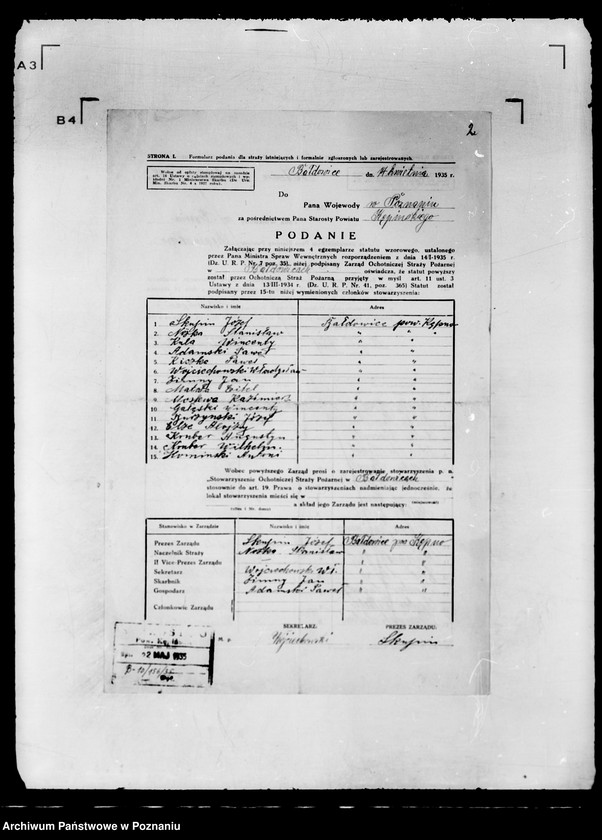 A3
B4
2
STRONA I. Formularz podania dla straży istniejących i formalnie zgłoszonych lub zarejestrowanych.
Bałdowice dn. 14 kwietnia 1935 r.
Do
Pana Wojewody w Poznaniu
za pośrednictwem Pana Starosty Powiatu Kępińskiego
PODANIE
Załączając przy niniejszem 4 egzemplarze statutu wzorowego, ustalonego
przez Pana Ministra Spraw Wewnętrznych rozporządzeniem z dnia 14-I-1935 r.
(Dz. U. R. P. Nr. 7 poz. 35), niżej podpisany Zarząd Ochotniczej Straży Pożarnej
w Bałdowicach oświadcza, że statut powyższy
został przez Ochotniczą Straż Pożarną przyjęty w myśl art. 11 ust. 3
Ustawy z dnia 13-III-1934 r. (Dz. U. R. P. Nr. 41, poz. 365) Statut został
podpisany przez 15-tu niżej wymienionych członków stowarzyszenia:
Nazwisko i imię Adres
1 Skupin Józef Bałdowice pow. Kępno
2 Noska Stanisław " "
3 Kula Wincenty " "
4 Adamski Paweł " "
5 Kiczka Paweł " "
6 Wojciechowski Władysław " "
7 Zimny Jan " "
8 " "
9 Moskwa Kazimierz " "
10 Wincenty " "
11 Józef " "
12 Alojzy " "
13 Augustyn " "
14 Wilhelm " "
15 Antoni " "
Wobec powyższego Zarząd prosi o zarejestrowanie stowarzyszenia p. n.
„Stowarzyszenie Ochotniczej Straży Pożarnej w Bałdowicach "
stosownie do art. 19. Prawa o stowarzyszeniach nadmieniając jednocześnie, że
lokal stowarzyszenia mieści się w
a skład jego Zarządu jest następujący:
Stanowisko w Zarządzie Nazwisko i imię Adres
Prezes Zarządu Skupin Józef Bałdowice pow. Kępno
Naczelnik Straży Noska Stanisław " "
II Vice-Prezes Zarządu
Sekretarz Wojciechowski Wł. " "
Skarbnik Zimny Jan " "
Gospodarz Adamski Paweł " "
Członkowie Zarządu
SEKRETARZ: PREZES ZARZĄDU:
M. p. Wojciechowski Skupin
2 MAJ 1935
Archiwum Państwowe w Poznaniu